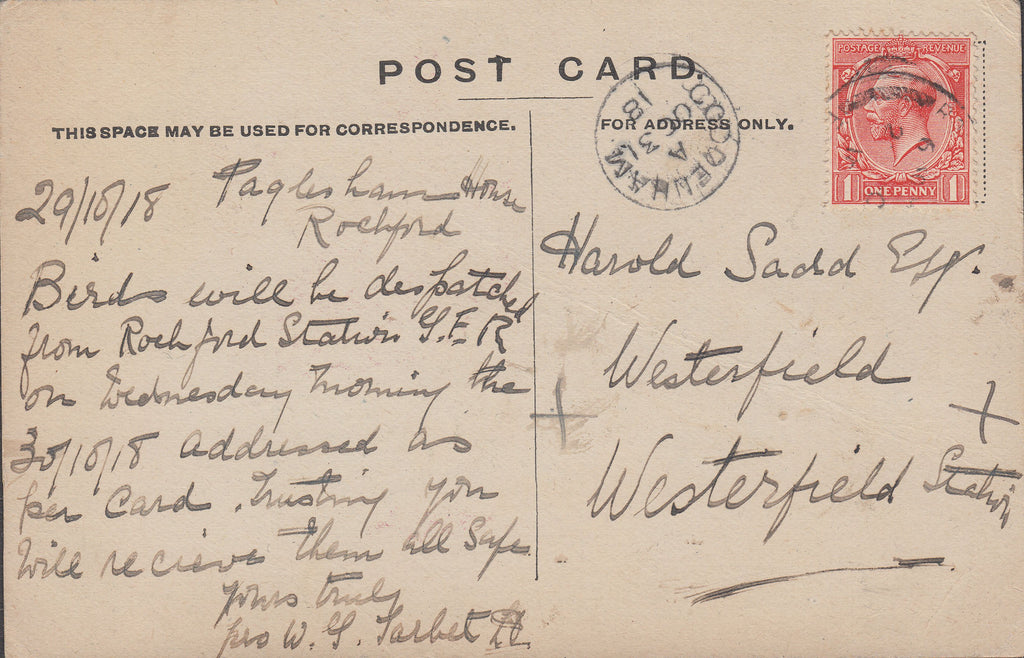 POST CARD.
THIS SPACE MAY BE USED FOR CORRESPONDENCE.
FOR ADDRESS ONLY.
POSTAGE REVENUE
1 ONE PENNY 1
CODDENHAM
A
30 OC
18
29/10/18 Paglesham House
Rochford
Birds will be despatched
from Rochford Station G.E.R
on Wednesday morning the
30/10/18 addressed as
per card. Trusting you
will recieve them all safe
yours truly
pro W. G. Tarbet
Harold Sadd Esq.
Westerfield
Westerfield Station